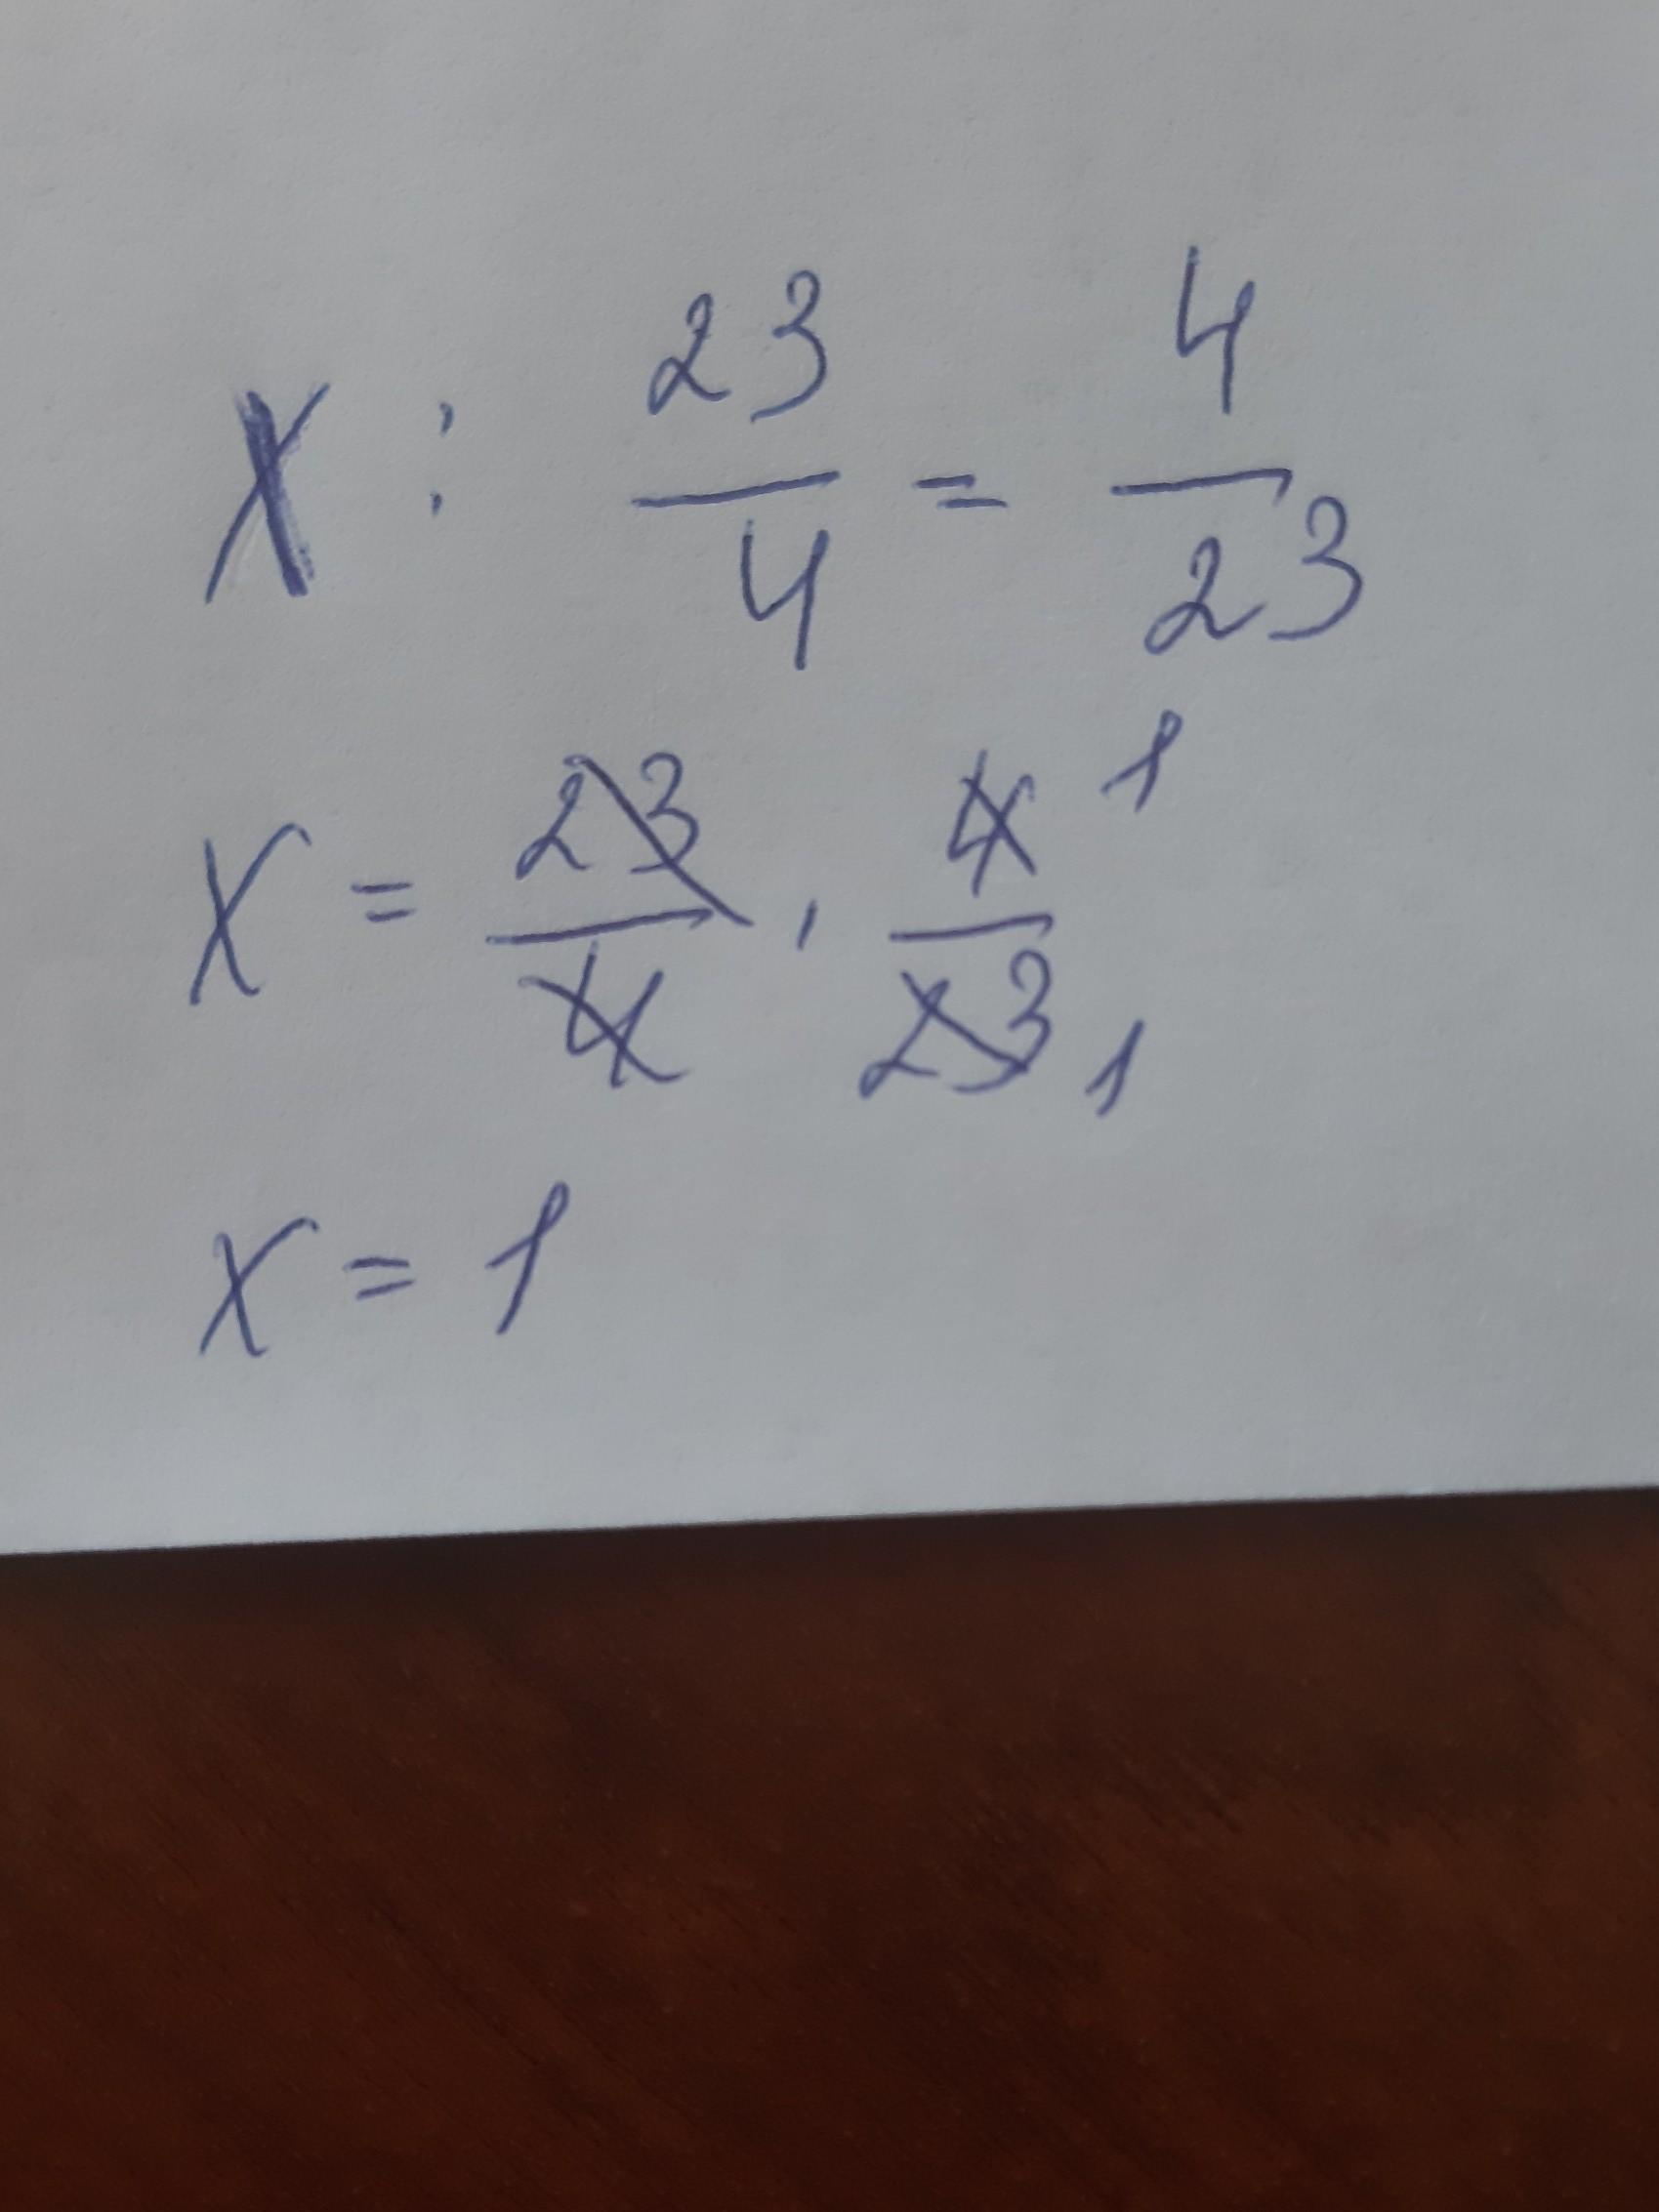 X : 23/4 = 4/23
X = 23/4 · 4/23 1 1
X = 1